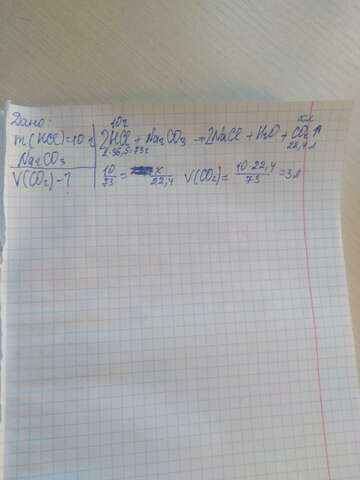 Дано:
m(HCl)=10г
Na₂CO₃
V(CO₂)-?
10г хл
2HCl + Na₂CO₃ → 2NaCl + H₂O + CO₂↑
2·36,5=73г 22,4л
10/73 = x/22,4 V(CO₂) = 10·22,4/73 = 3л